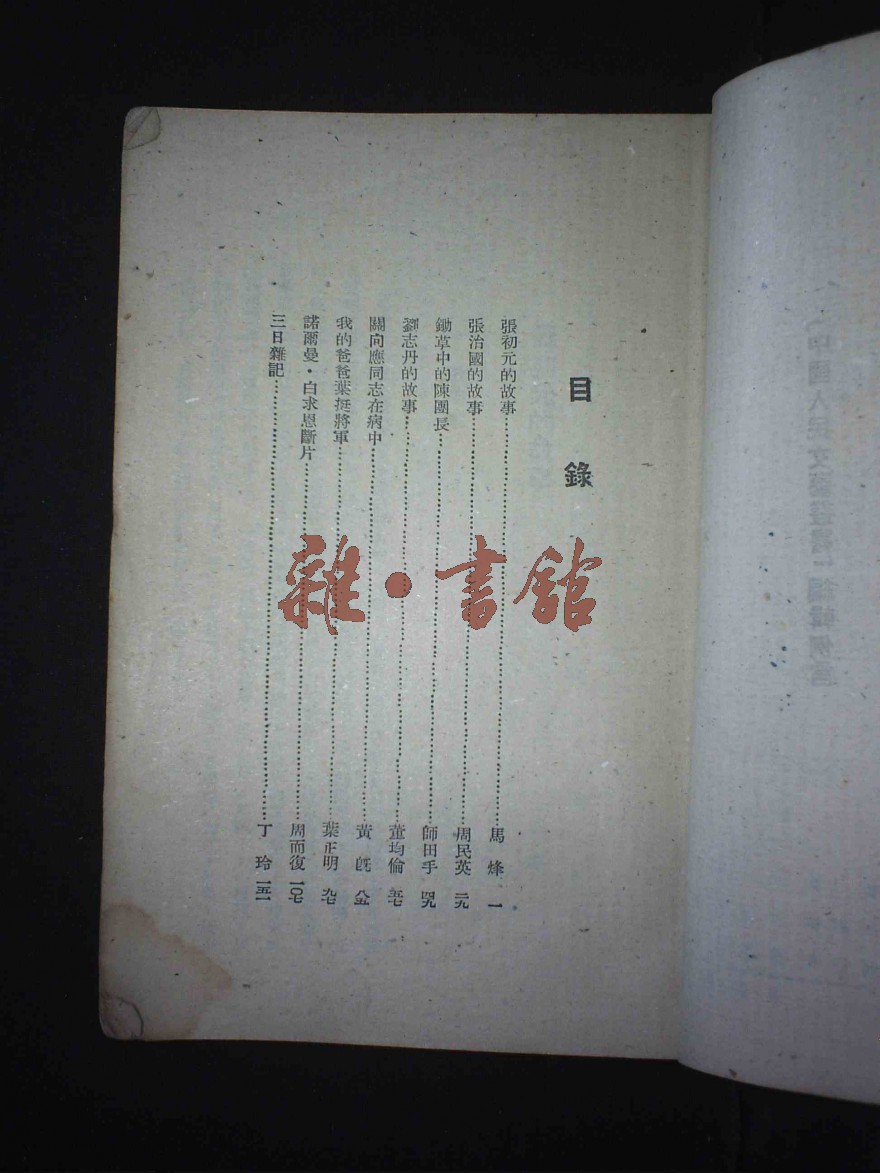 目錄
張初元的故事 馬烽 一
張治國的故事 周民英 二九
鋤草中的陳團長 師田手 四九
劉志丹的故事 董均倫 五七
關向應同志在病中 黃既 八五
我的爸爸葉挺將軍 葉正明 九七
諾爾曼·白求恩斷片 周而復 一〇七
三日雜記 丁玲 一五一
雜·書館